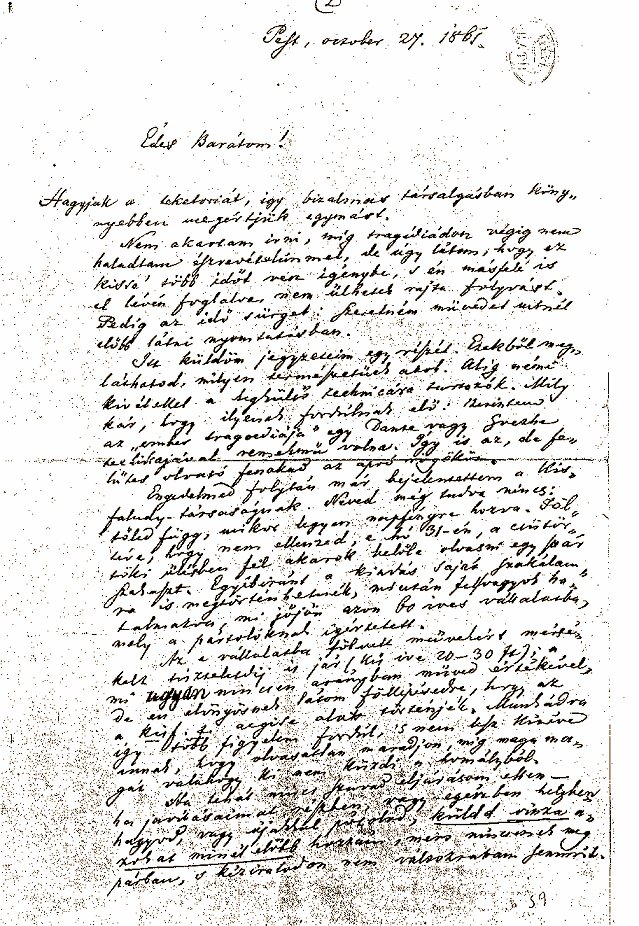 Pest, october 27. 1861.
Édes Barátom!
Hagyjuk a teketoriát, igy bizalmas társalgásban köny„
nyebben megértjük egymást.
Nem akartam irni, mig tragédiádon végig nem
haladtam észrevételimmel, de úgy látom, hogy ez
kissé több időt vesz igénybe, s én másfelé is
el lévén foglalva, nem ülhetek rajta folyvást.
Pedig az idő sürget: szeretném művedet mitnél
előbb látni nyomtatásban.
Itt küldöm jegyzeteim egy részét. Ezekből meg„
láthatod, milyen természetüek azok. Alig némi
kivétellel a legkülső technicára tartozók. Mily
kár, hogy ilyenek fordúlnak elő! Szerintem
az „ember tragoediája" egy Dante vagy Goethe
technikájával remekmű volna. Így is az, de fe„
lűtes olvasó fenakad az apró
Engedelmed folytán már bejelentettem a Kis„
faludy-társaságnak. Neved még tudva nincs:
tőled függ, mikor legyen napfényre hozva. Föl„
téve, hogy nem ellenzed, e hó 31-én, a csütör„
töki ülésben fel akarok belőle olvasni egy pár
szakaszt. Egyébiránt a kiadás saját szakálam„
ra is megtörténhetnék, miután felhagyok ha„
talmatva, mi jőjön azon 60 íves vállalatba,
mely a pártolóknak igértetett.
Az e vállalatba fölvett művekért mérsé„
kelt tiszteletdíj is jár (kis íve 20–30 ft); a
mi ugyan nincsen arányban műved értékével,
de én előnyösnek látom föllépésedre, hogy az
a Kisf. t. aegise alatt történjék. Munkádra
igy több figyelem fordúl, s nem lesz kitéve
annak, hogy olvasatlan maradjon, míg maga ma„
gát valahogy ki nem küzdi a homályból.
Ha tehát nincs szavad eljárásom ellen —
ha javításaimat részben, vagy egészben helyben
hagyod, vagy újakkal pótolod, küldd vissza a„
zokat minél előbb hozzám, mert nincsenek meg
párban, s kéziratodon nem változtattam semmit.
39